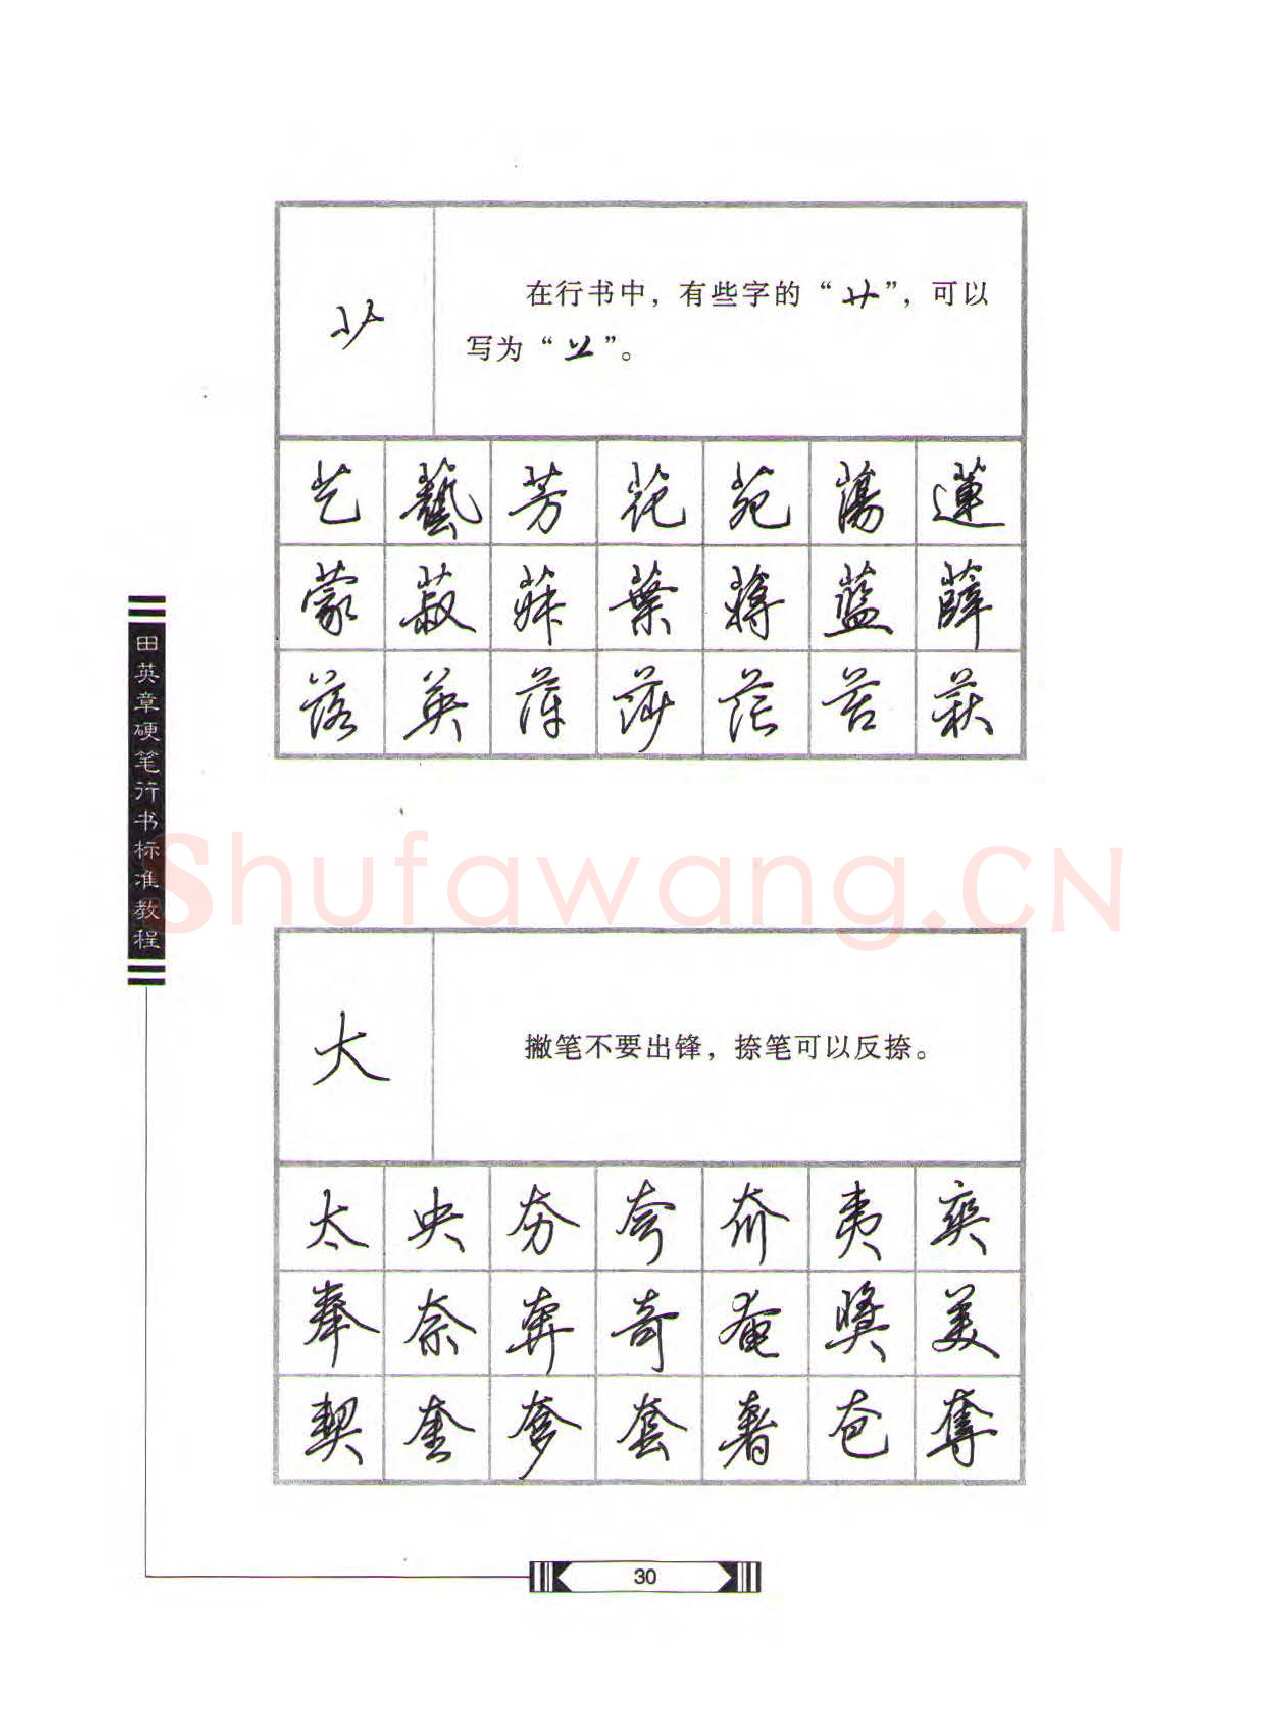 艹
在行书中，有些字的“艹”，可以
写为“䒑”。
艺 藝 芳 花 苑 蕩 蓮
蒙 菽 葉 蔣 藍 薛
落 英 莎 茫 苦 荻
田英章硬笔行书标准教程
Shufawang.CN
大
撇笔不要出锋，捺笔可以反捺。
太 央 夯 夸 夼 夷
奉 奈 奔 奇 奄 獎 美
契 奎 爹 套 奢 奪
30